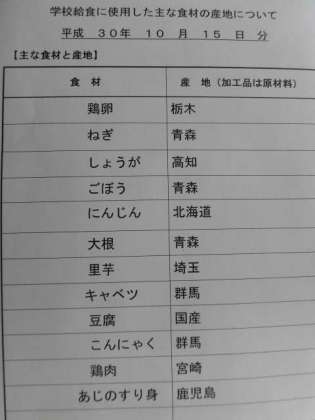 学校給食に使用した主な食材の産地について
平成 30年 10 月 15 日 分
【主な食材と産地】
食 材 産 地（加工品は原材料）
鶏卵 栃木
ねぎ 青森
しょうが 高知
ごぼう 青森
にんじん 北海道
大根 青森
里芋 埼玉
キャベツ 群馬
豆腐 国産
こんにゃく 群馬
鶏肉 宮崎
あじのすり身 鹿児島